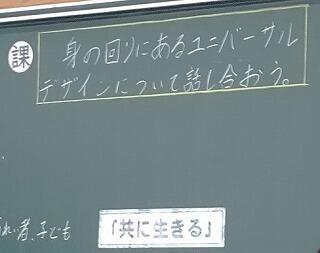 課
身の回りにあるユニバーサル
デザインについて話し合おう。
れい者、子ども
「共に生きる」